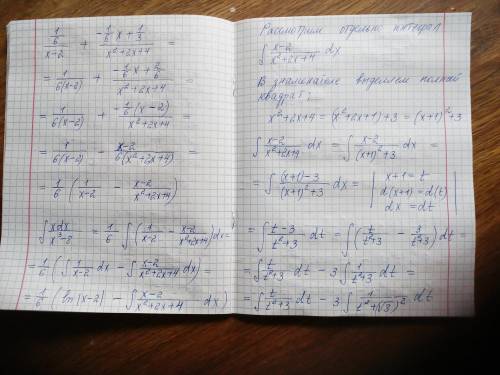 \frac{\frac{1}{6}}{x-2} + \frac{-\frac{1}{6}x + \frac{1}{3}}{x^2+2x+4} =
= \frac{1}{6(x-2)} + \frac{-\frac{1}{6}x + \frac{2}{6}}{x^2+2x+4} =
= \frac{1}{6(x-2)} + \frac{-\frac{1}{6}(x-2)}{x^2+2x+4} =
= \frac{1}{6(x-2)} - \frac{x-2}{6(x^2+2x+4)} =
= \frac{1}{6} \left( \frac{1}{x-2} - \frac{x-2}{x^2+2x+4} \right)
\int \frac{xdx}{x^3-8} = \frac{1}{6} \int \left( \frac{1}{x-2} - \frac{x-2}{x^2+2x+4} \right) dx =
= \frac{1}{6} \left( \int \frac{1}{x-2} dx - \int \frac{x-2}{x^2+2x+4} dx \right) =
= \frac{1}{6} \left( \ln|x-2| - \int \frac{x-2}{x^2+2x+4} dx \right)
Рассмотрим отдельно интеграл
\int \frac{x-2}{x^2+2x+4} dx
В знаменателе выделяем полный
квадрат:
x^2+2x+4 = (x^2+2x+1)+3 = (x+1)^2+3
\int \frac{x-2}{x^2+2x+4} dx = \int \frac{x-2}{(x+1)^2+3} dx =
= \int \frac{(x+1)-3}{(x+1)^2+3} dx = | x+1=t
d(x+1)=d(t)
dx=dt |
= \int \frac{t-3}{t^2+3} dt = \int \left( \frac{t}{t^2+3} - \frac{3}{t^2+3} \right) dt =
= \int \frac{t}{t^2+3} dt - 3 \int \frac{1}{t^2+3} dt =
= \int \frac{t}{t^2+3} dt - 3 \int \frac{1}{t^2+(\sqrt{3})^2} dt